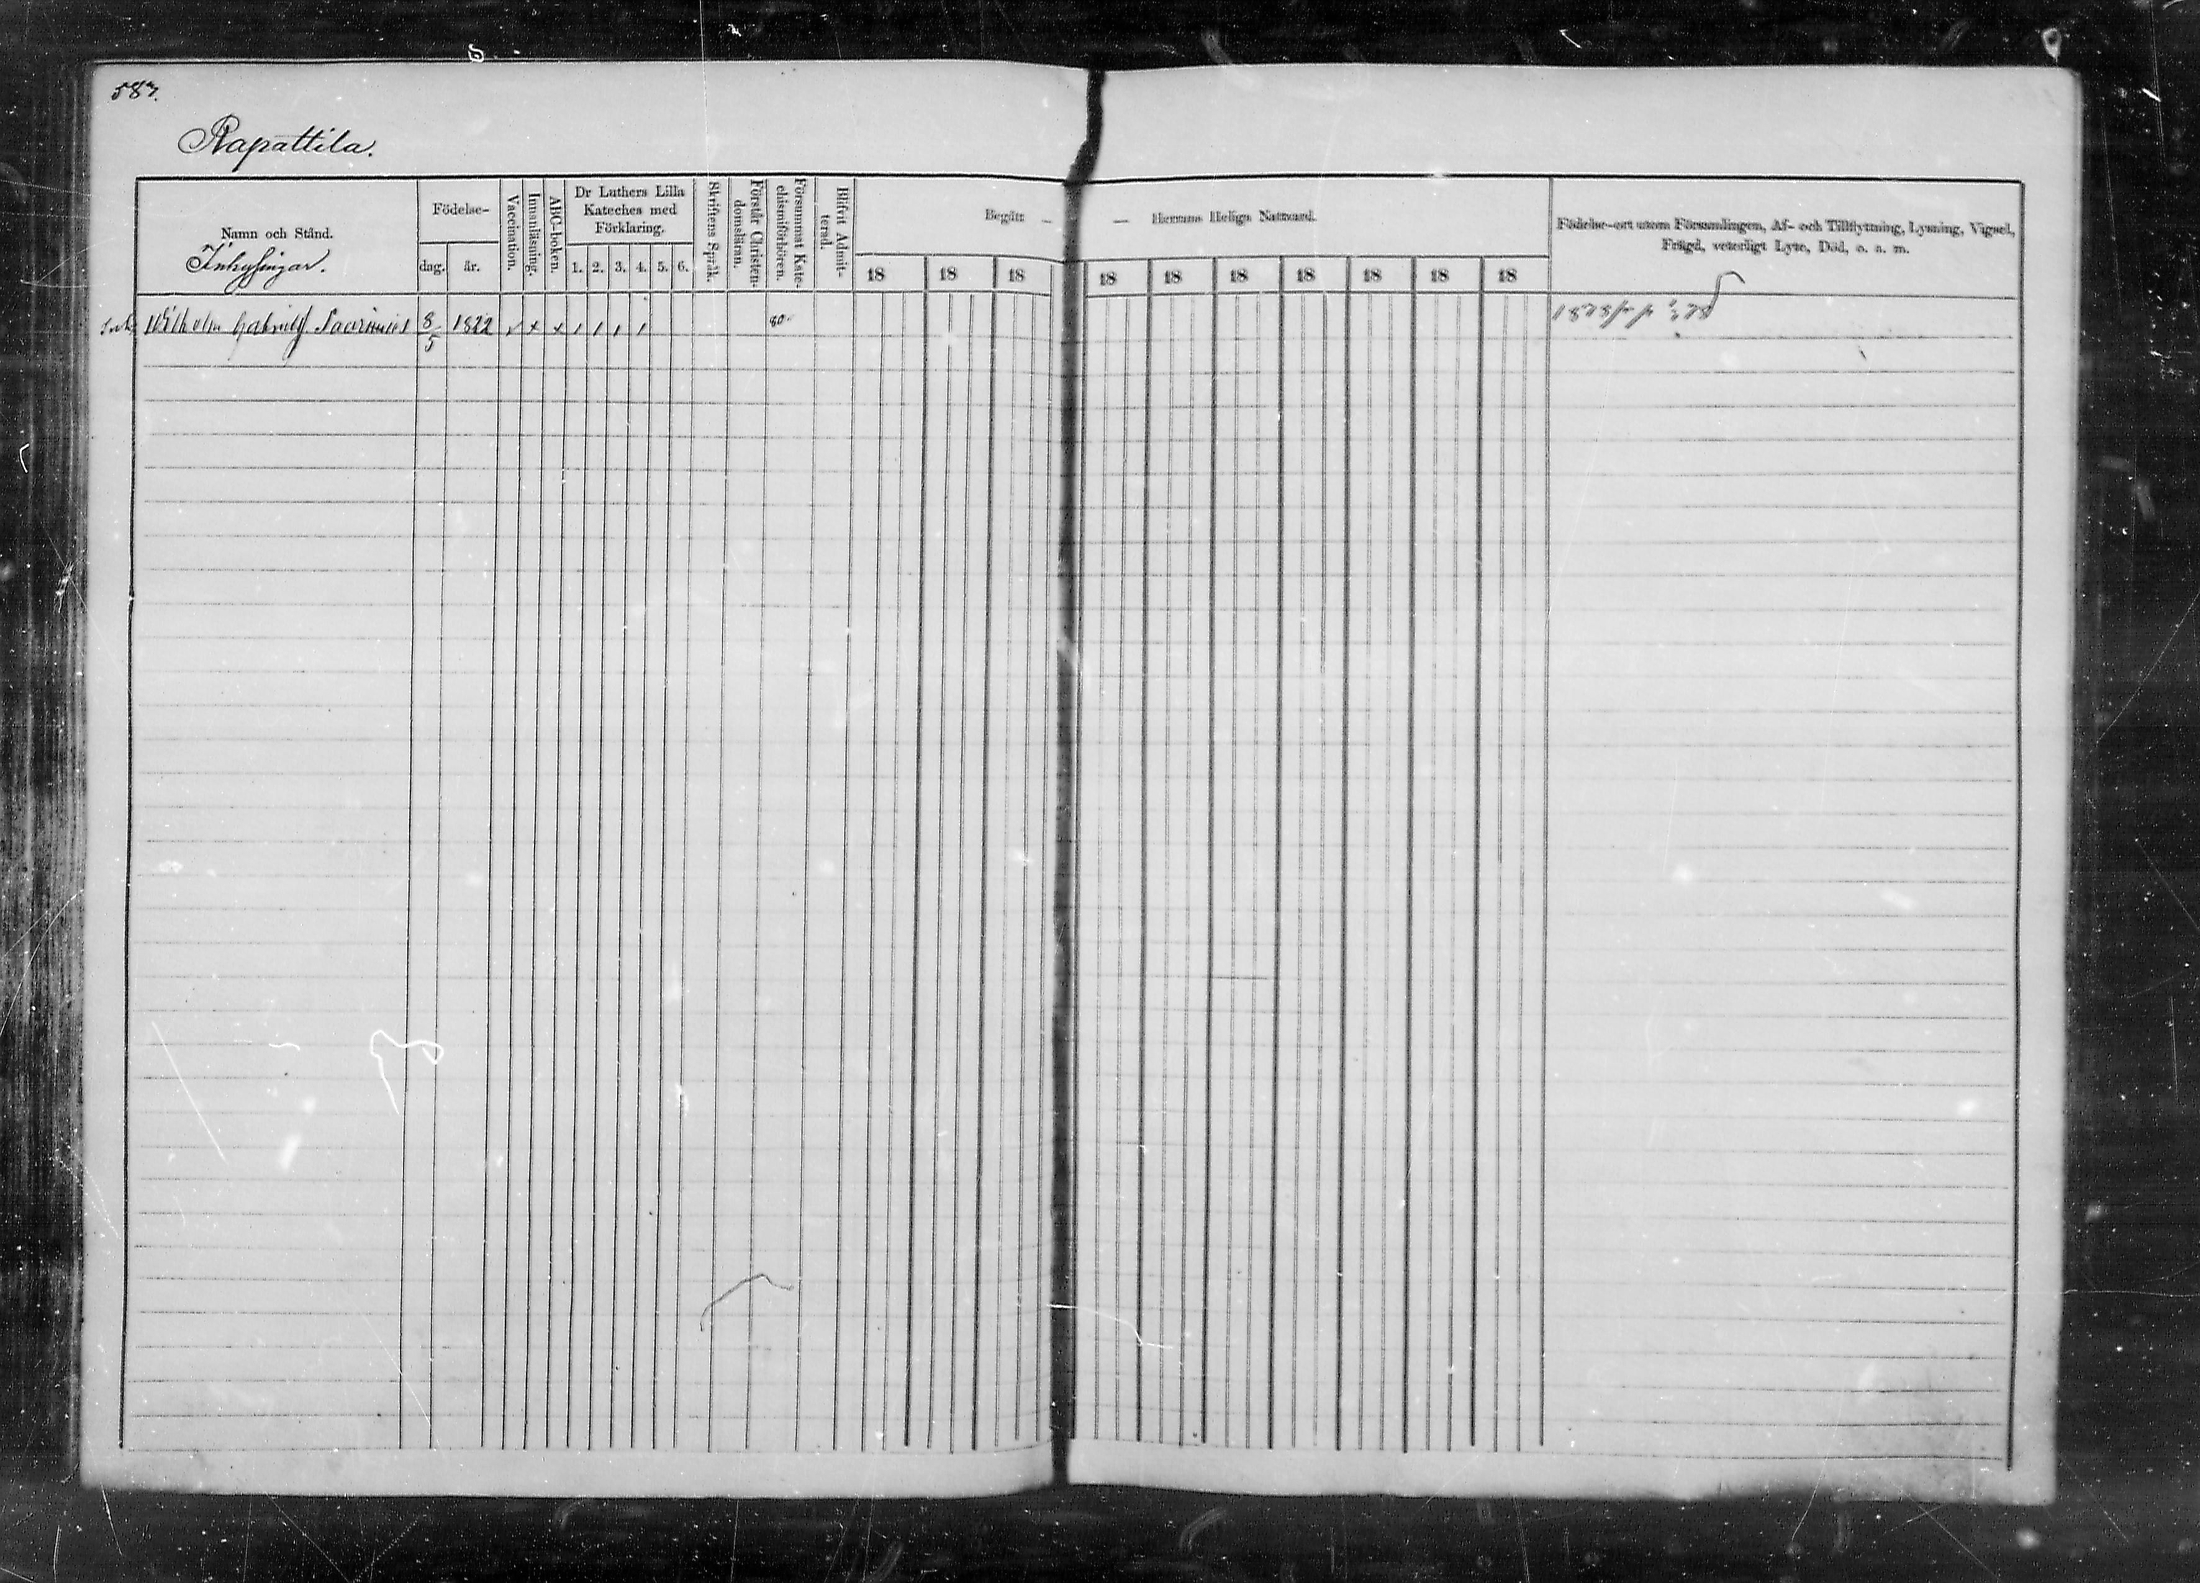 587.
Rapattila.
Namn och Stånd.
Inhysingar.
Födelse-
dag. år.
Vaccination.
Innanläsning.
ABC-boken.
Dr Luthers Lilla
Kateches med
Förklaring.
1. 2. 3. 4. 5. 6.
Skriftens Språk.
Förstår Christen-
domsläran.
Försummat Kate-
chismiförhören.
Blifvit Admit-
terad.
Begått — — Herrans Heliga Nattvard.
18 18 18 18 18 18 18 18 18 18
Födelse-ort utom Församlingen, Af- och Tillflyttning, Lysning, Vigsel,
Frägd, veterligt Lyte, Död, o. s. m.
Inh. Wilhelm Gabrielsf 8/5 1822 80